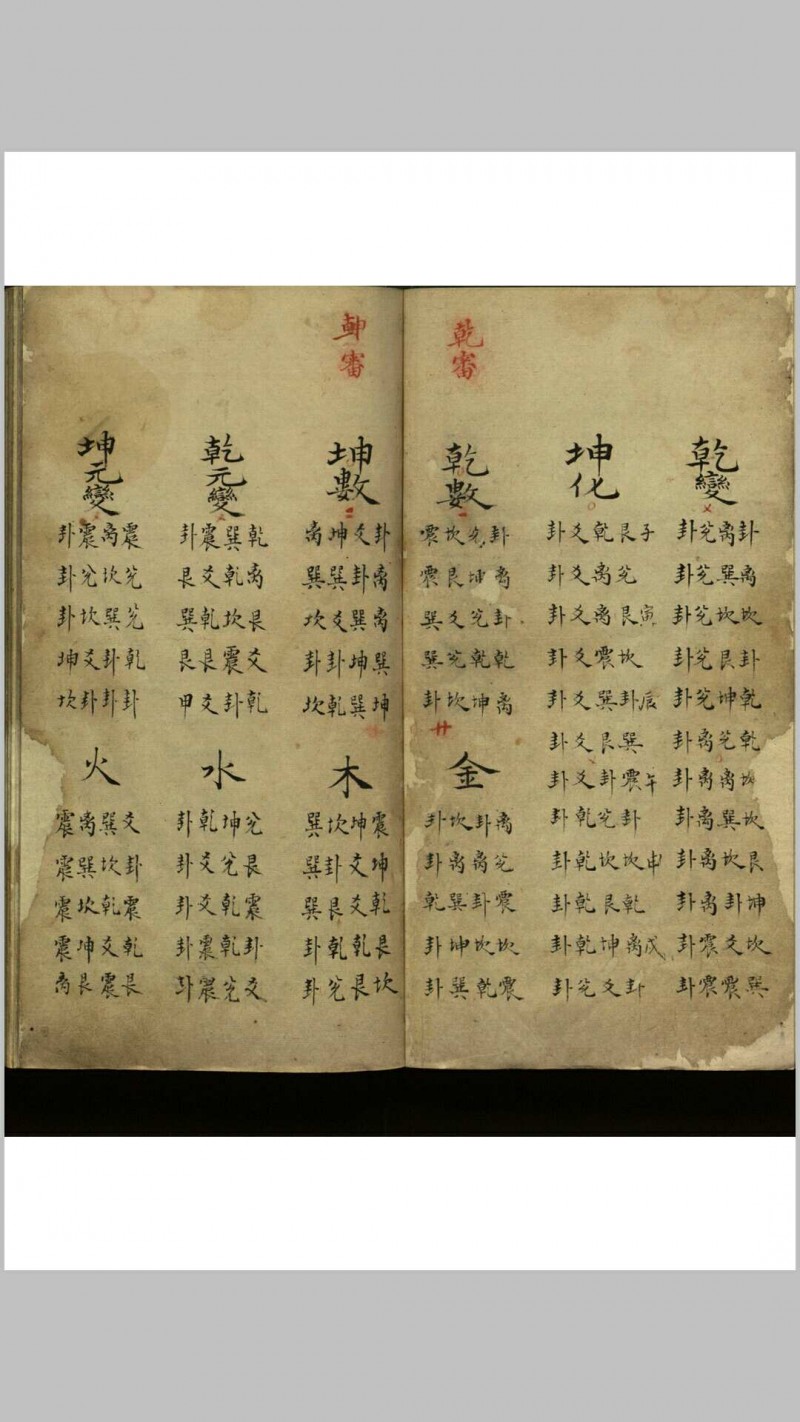 乾變
卦兊离卦
卦兊巽离
卦兊坎坎
卦兊艮卦
卦兊坤乾
卦离兊乾
卦离离坎
卦离巽坎
卦离坎艮
卦离卦坤
卦震爻坎
卦震震巽
坤化
卦爻乾艮子
卦爻离兊
卦爻离艮寅
卦爻震坎
卦爻巽卦辰
卦爻艮巽
卦爻卦震午
卦乾兊卦
卦乾坎坎申
卦乾艮乾
卦乾坤离戌
卦兊爻卦
乾審
乾數
震坎兊卦
震艮坤离
巽爻兊卦
巽兊乾乾
卦坎坤离
金
卦坎卦离
卦离离兊
乾巽卦震
卦坤坎坎
卦巽乾震
坤審
坤數
离坤爻卦
巽巽卦离
坎爻巽离
卦卦坤巽
坎乾巽坤
木
巽坎坤震
巽卦爻坤
巽艮爻乾
卦乾乾艮
卦兊艮坎
乾元變
卦震巽乾
艮爻乾离
巽乾坎艮
艮艮震爻
甲爻卦乾
水
卦乾坤兊
卦爻兊艮
卦爻乾震
卦震乾卦
卦震兊爻
坤元變
卦震离震
卦兊坎兊
卦坎巽兊
坤爻卦乾
坎卦卦卦
火
震离巽爻
震巽坎卦
震坎乾震
震坤爻乾
离艮震艮